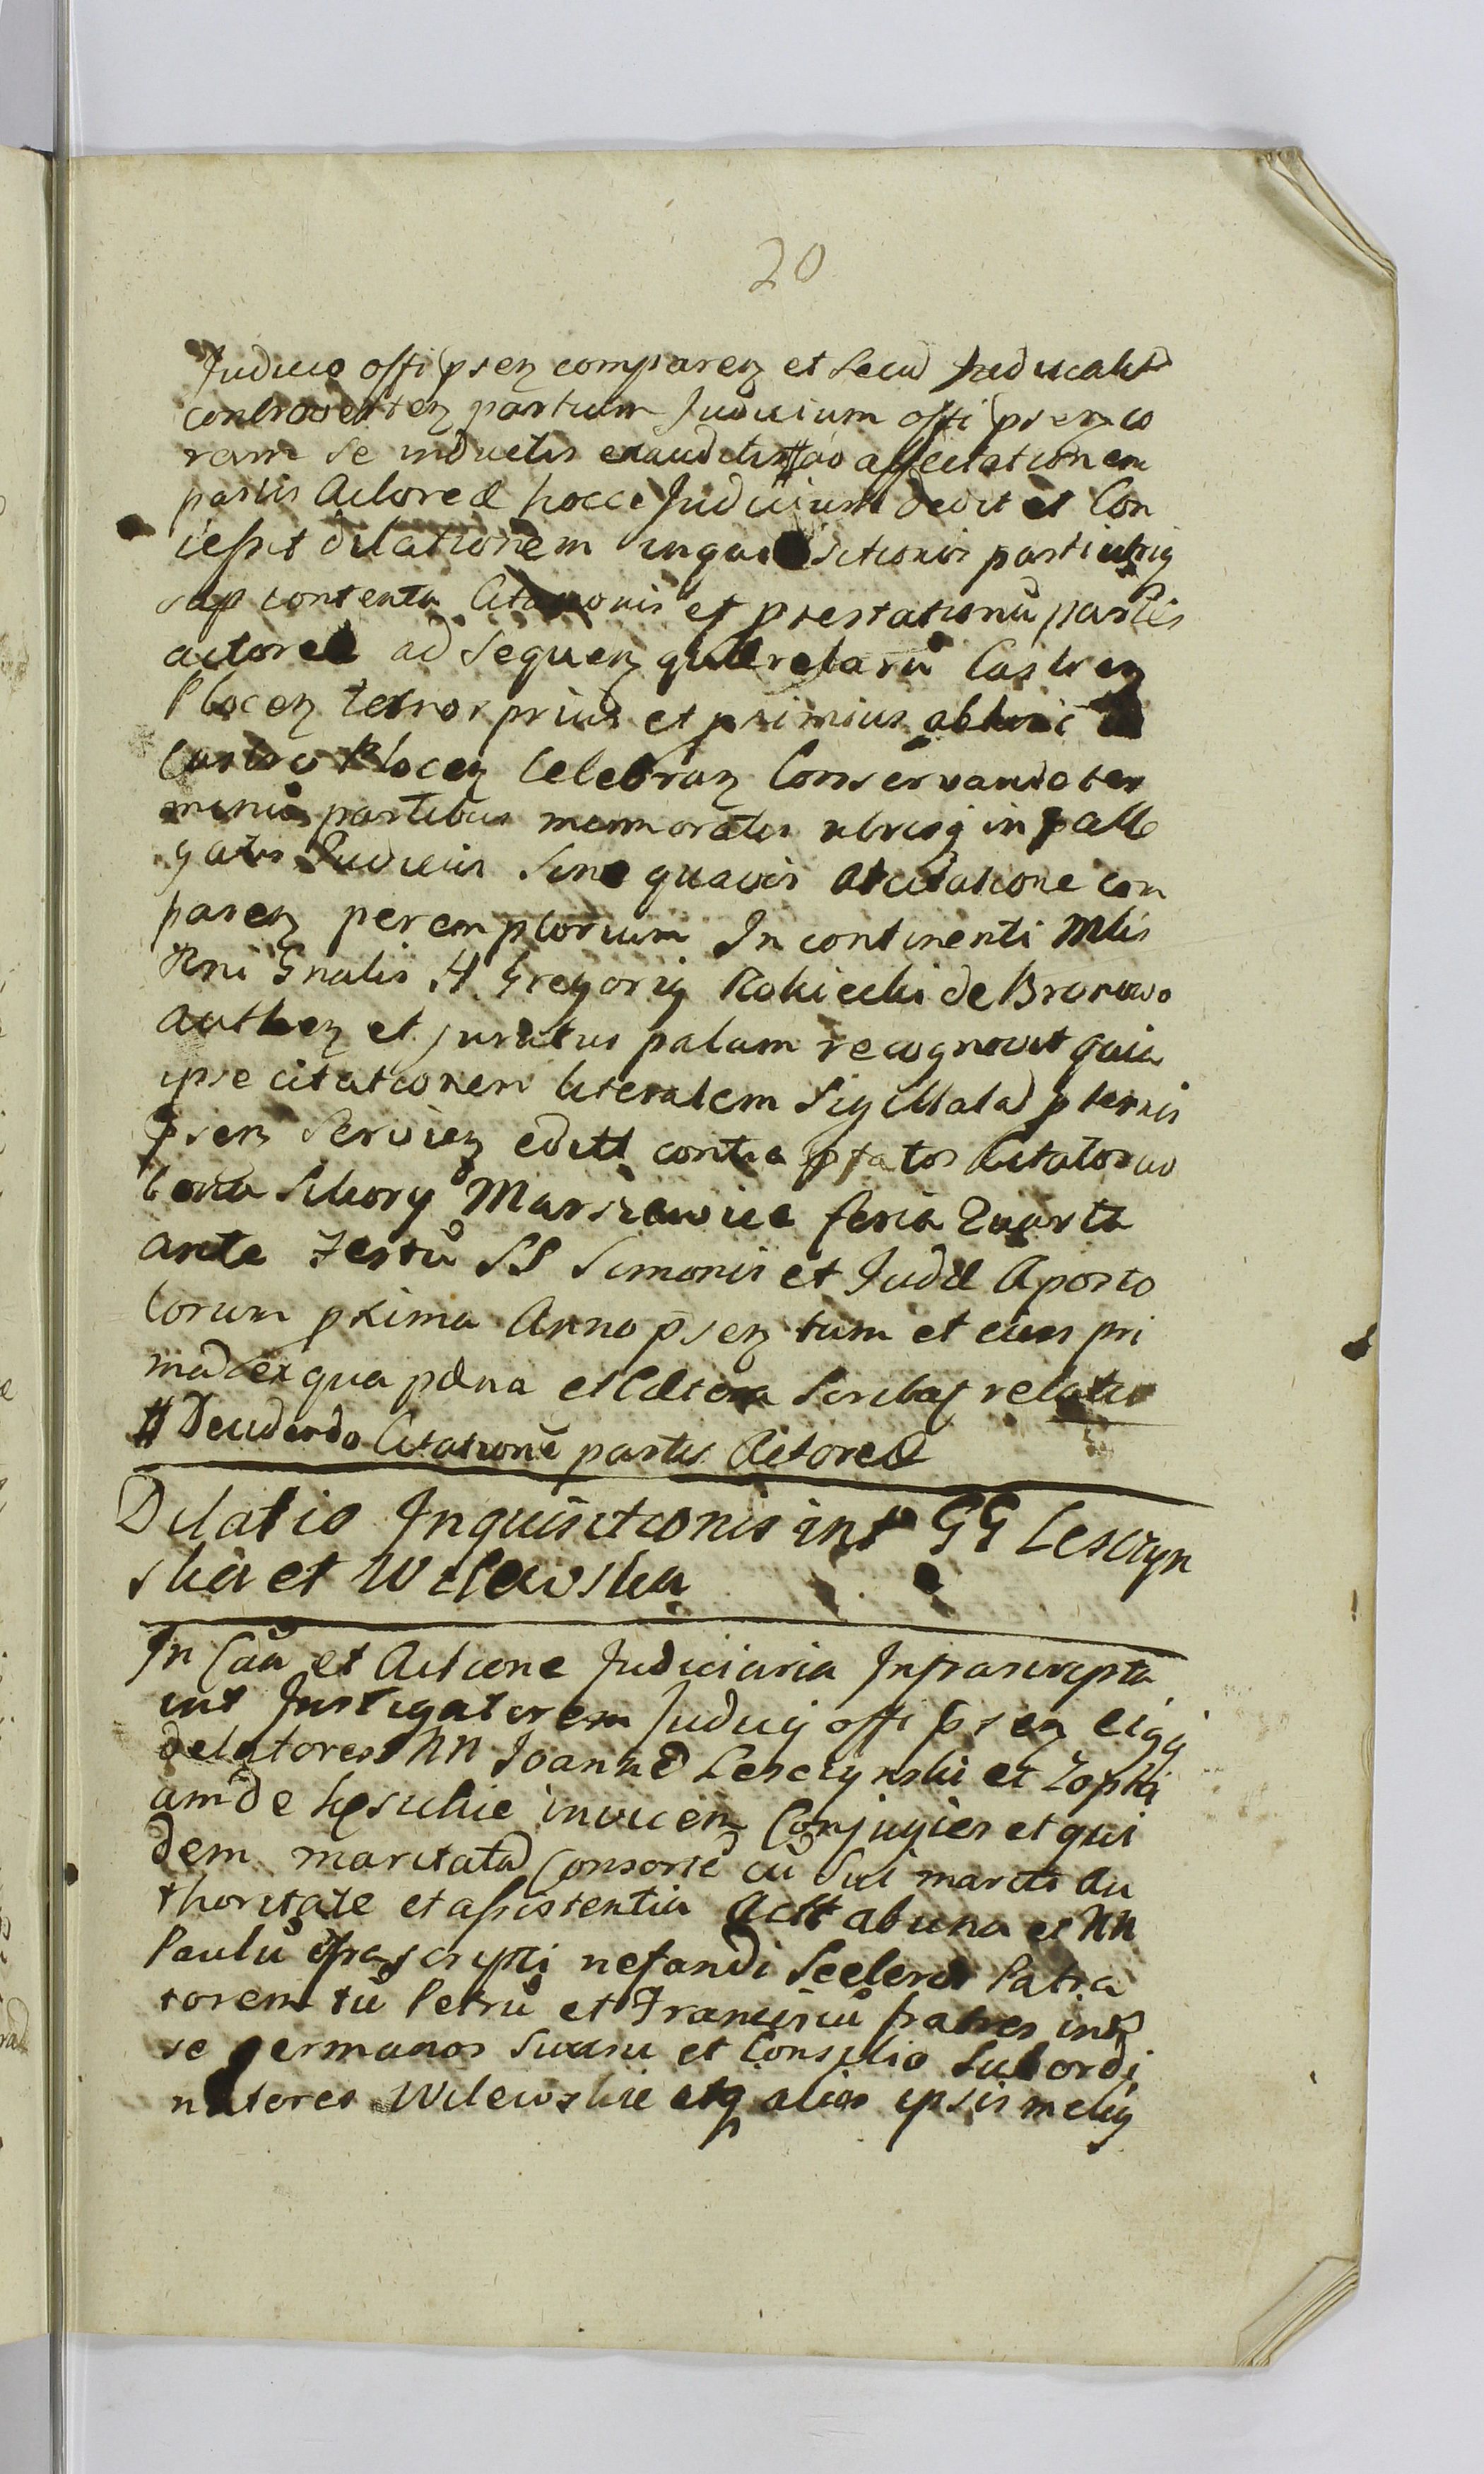 20
Judicio offi psen comparen et secu Judicalit
controverten partium Judicium offi psen co
ram se inductis exauditis # ad affectationem
partis Actoreæ hocce Judicium dedit et Con
cessit dilationem inquisitionis partiu
sup contenta Citationis et prestationu partis
actoreæ ad sequen querelaru Castren
Plocen termor prius et primius abhinc in
Castro Plocen Celebran Conservando ter
minu partibus memoratis utrisq in pall
gatis Judiciis sine quavis Adcitatione com
paren peremptorium In continenti Mlis
Rni Gnalis H Gregorig Rokicki de Bronowo
authen et juratus palam recognovit quia
ipse citationem literalem sigillata p ternis
psen servien editt contra pfatos Citatos in
bona Sikory Marszewice feria Quarta
ante Festu SS Simonis et Judæ Aposto
lorum pxima Anno psen tum et eius pri
ma ex qua pæna et Cætera scribas relatio
# Deudendo Citatione partis Actoreæ
Dilatio Inquisitionis int GG Lesczyn
skie et Wilewskie
In Cau et Actione Judiciaria Infrascripta
int Instigatorem Judicij offi psen eiqj
delatores NN Joanne Lesczynski et Zophi
am de invicem Conjugies et qui
dem maritata Consorte cu sui mariti Au
thoritate et assistentia Actt ab una et NN
Paulu ifrascripti nefandi Sceleris Patra
torem tu Petru et Franciscu fratres int
se germanos suasu et Consilio subordi
natores Wilewskie atq alios ipsis melig